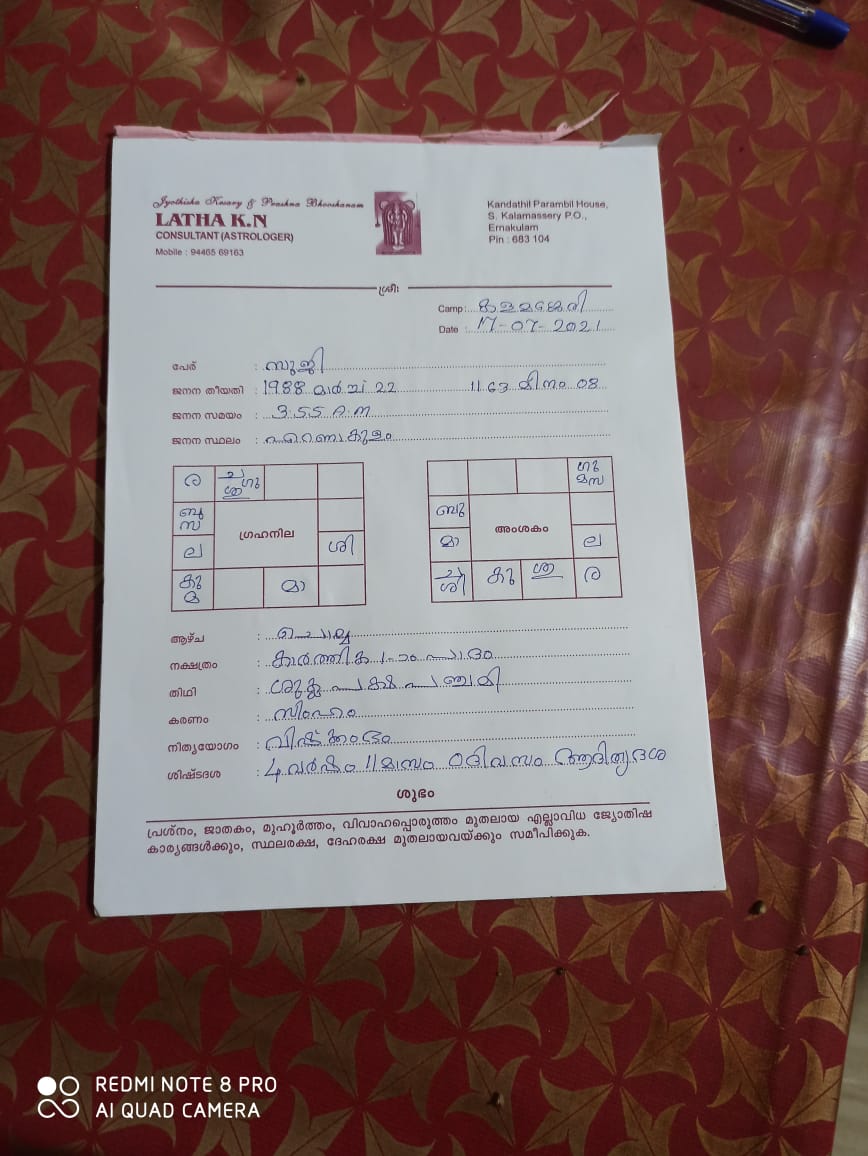 Jyothisha Kesary & Prashna Bhooshanam
LATHA K.N
CONSULTANT (ASTROLOGER)
Mobile : 94465 69163
Kandathil Parambil House,
S. Kalamassery P.O.,
Ernakulam
Pin : 683 104
ശ്രീഃ
Camp : കളമശ്ശേരി
Date : 17-07-2021
പേര് : സുജി
ജനന തീയതി : 1988 മാർച്ച് 22 1163 മീനം 08
ജനന സമയം : 3.55 A.M
ജനന സ്ഥലം : എറണാകുളം
ര ച ഗു ശു
ബു സ
ല ഗ്രഹനില ശി
കു മ മാ
ഗു മ സ
ബു
മാ അംശകം ല
ച ശി കു ശു ര
ആഴ്ച : ചൊവ്വ
നക്ഷത്രം : കാർത്തിക 1-ാം പാദം
തിഥി : ശുക്ലപക്ഷ പഞ്ചമി
കരണം : സിംഹം
നിത്യയോഗം : വിഷ്ക്കംഭം
ശിഷ്ടദശ : 4 വർഷം 11 മാസം 0 ദിവസം ആദിത്യദശ
ശുഭം
പ്രശ്നം, ജാതകം, മുഹൂർത്തം, വിവാഹപ്പൊരുത്തം മുതലായ എല്ലാവിധ ജ്യോതിഷ
കാര്യങ്ങൾക്കും, സ്ഥലരക്ഷ, ദേഹരക്ഷ മുതലായവയ്ക്കും സമീപിക്കുക.
REDMI NOTE 8 PRO
AI QUAD CAMERA